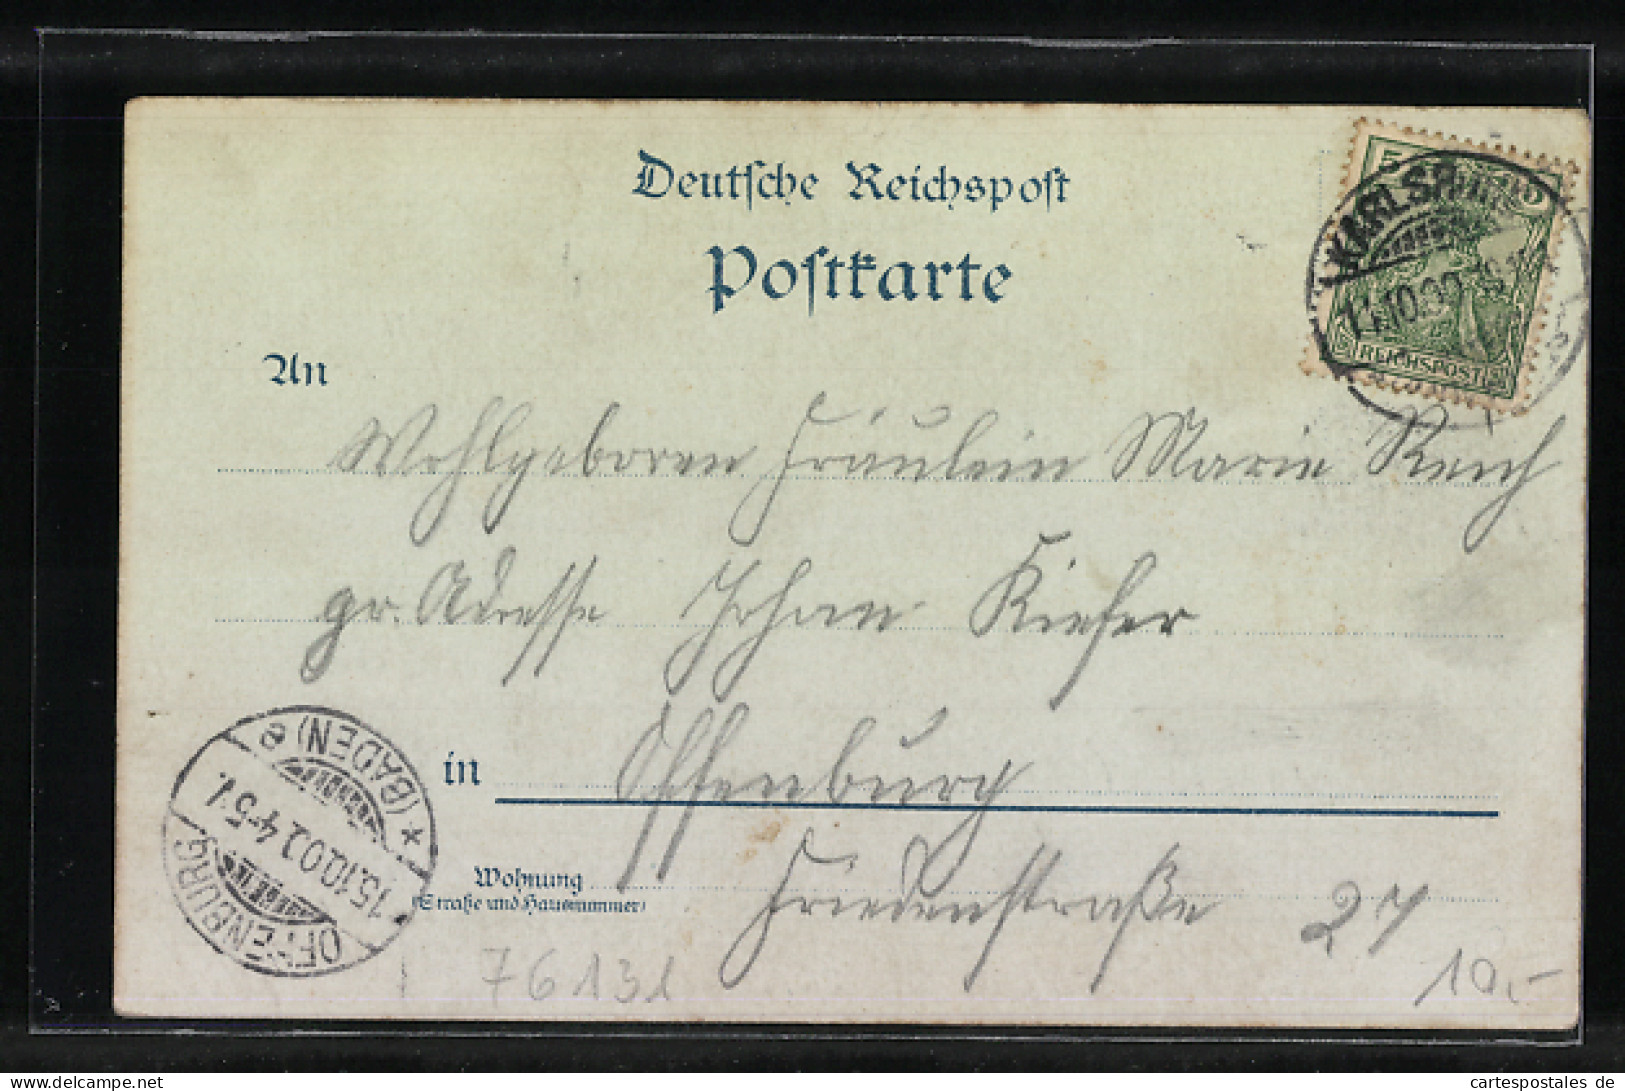 Deutsche Reichspost
Postkarte
5
KARLSRUHE
11.10.00.
REICHSPOST
An
Wohlgeboren Fräulein Marie Reich
gr. Adresse Johan Kiefer
in Offenburg
Wohnung
(Straße und Hausnummer)
Friedenstraße 27
OFFENBURG
* (BADEN) e
15.10.00. 4-5 V.
76131
10.-
cartespostales de